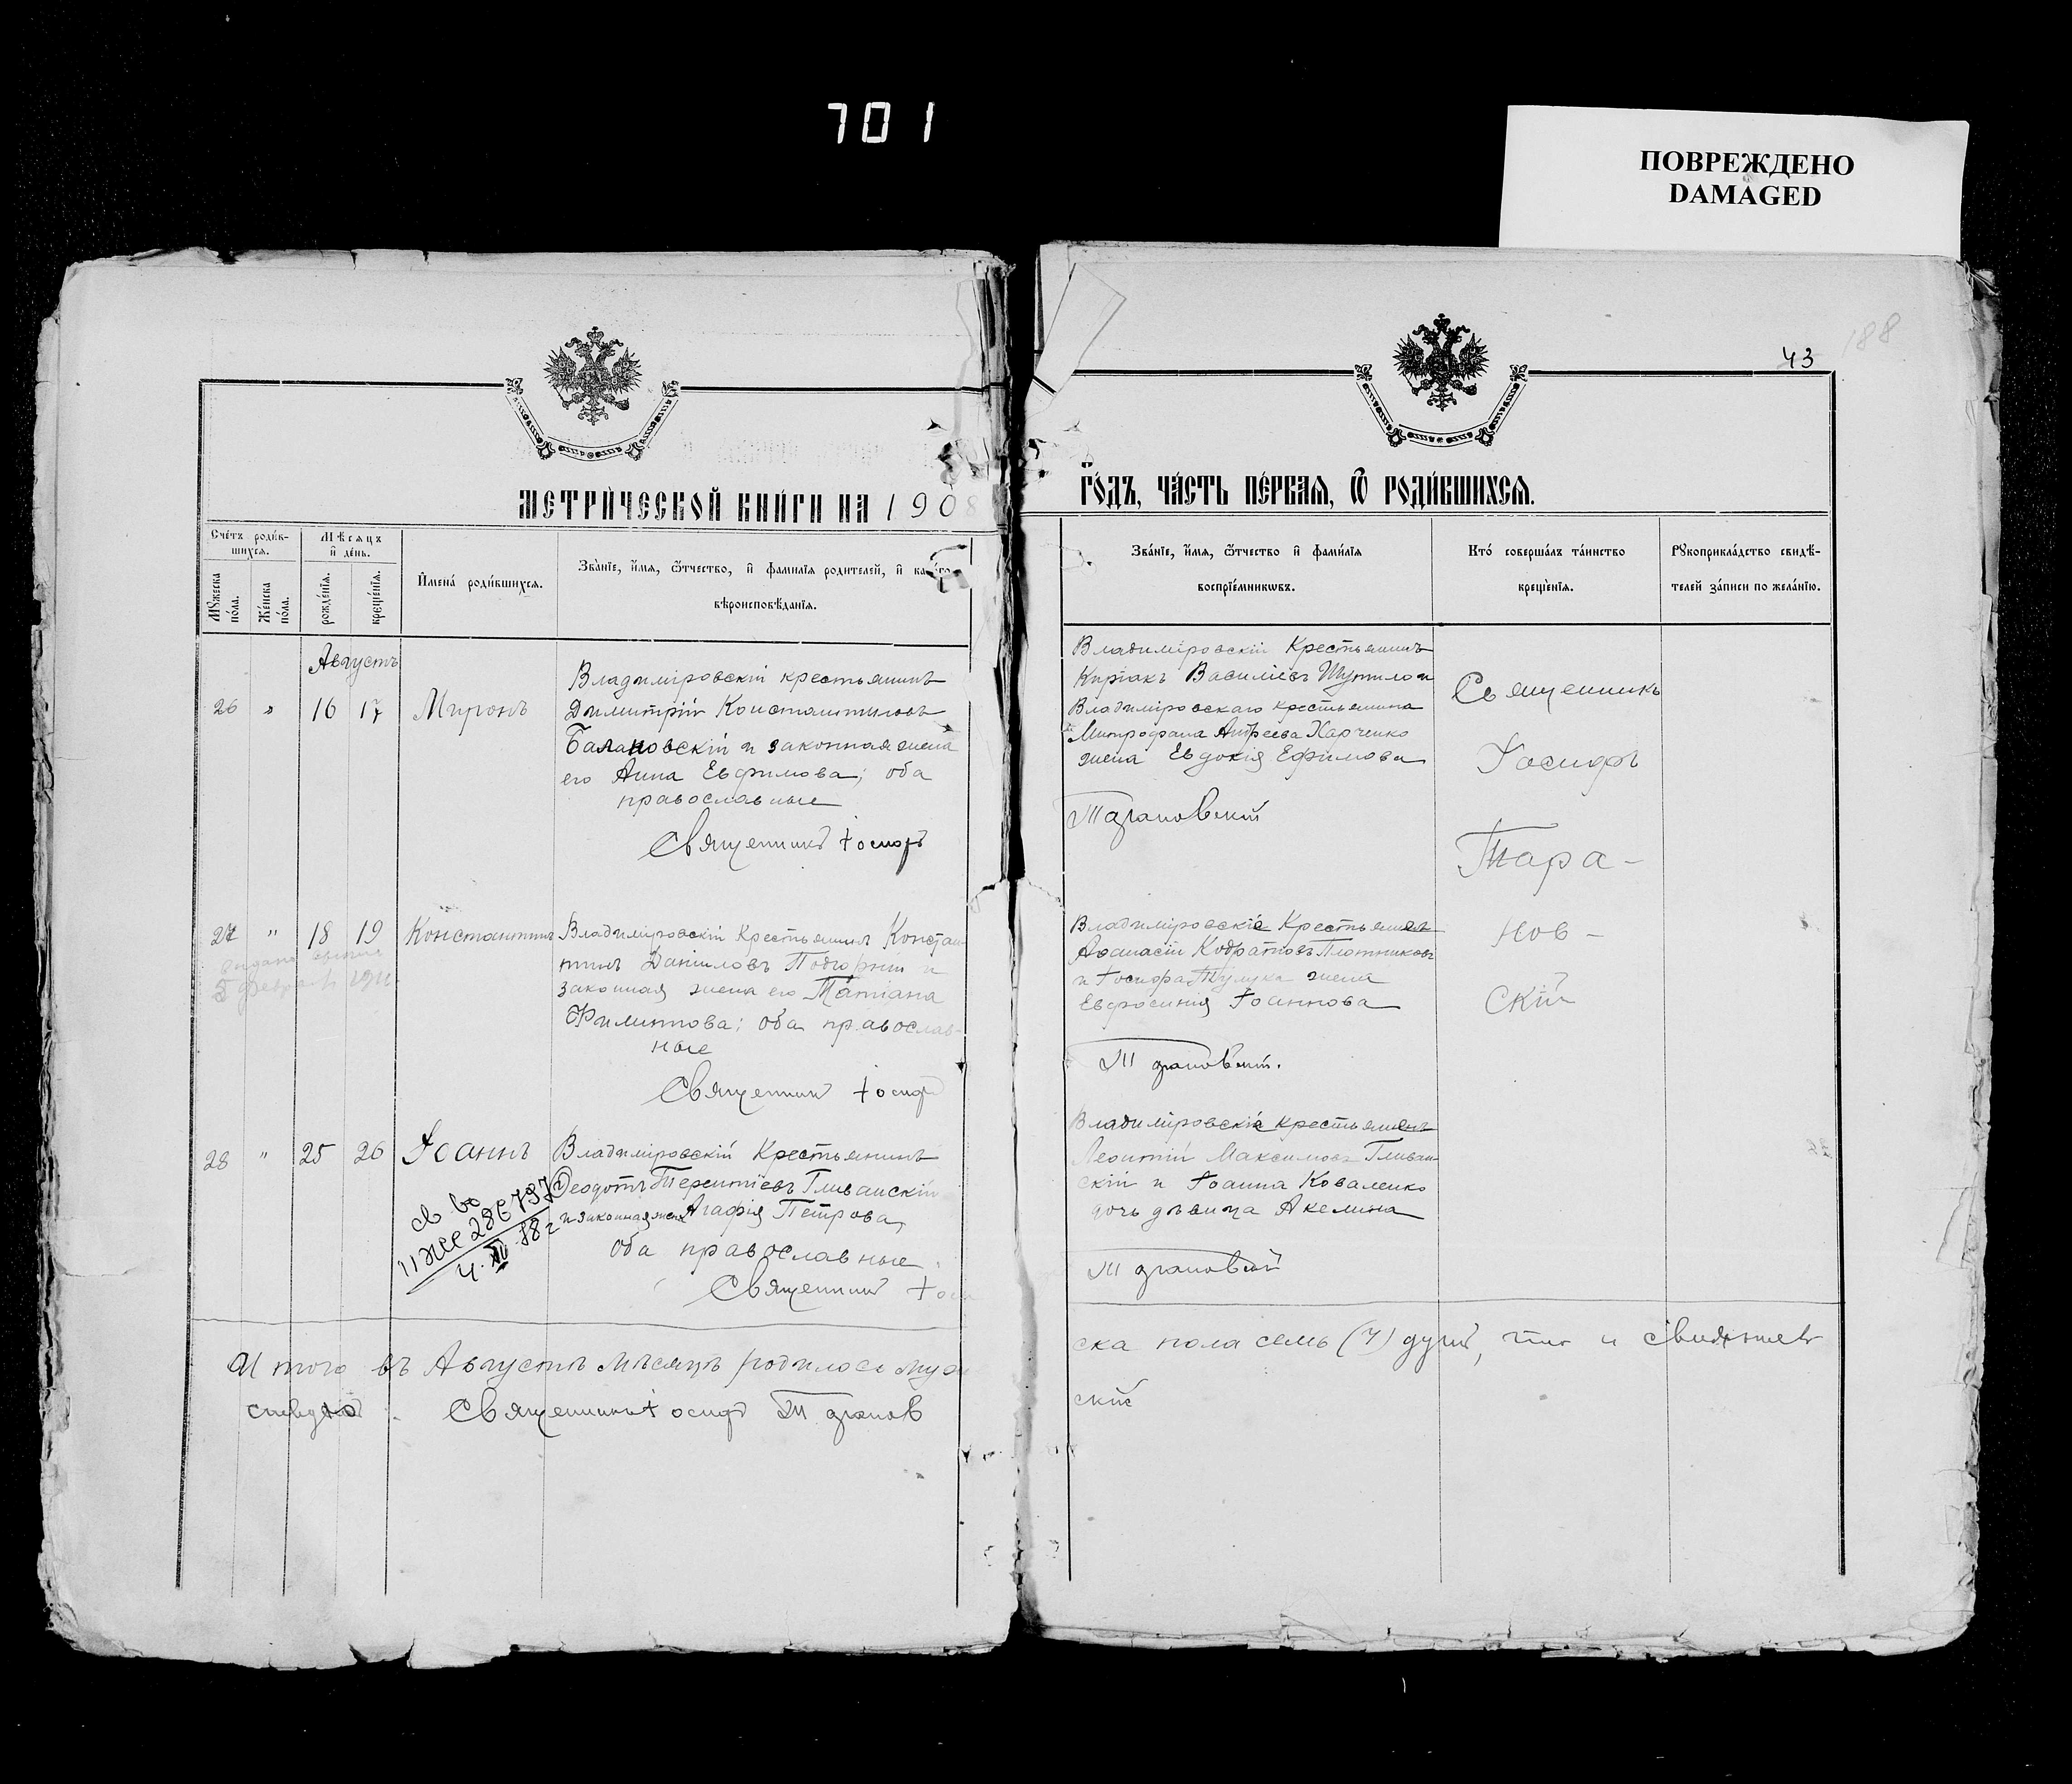 701
ПОВРЕЖДЕНО
DAMAGED
188
43
МЕТРИ́ЧЕСКОЙ КНИ́ГИ НА 1908
ГО́ДЪ, ЧА́СТЬ ПЕ́РВАЯ, Ѿ РОДИ́ВШИХСЯ.
Сче́тъ роди́в-
шихся.
Мѣ́сяцъ
и҆ де́нь.
Мꙋ́жеска
по́ла.
Же́нска
по́ла.
рожде́нїя.
креще́нїя.
И҆мена̀ роди́вшихся.
Зва́нїе, и҆́мя, ѻ҆́тчество, и҆ фами́лїя родителей, и҆
вѣроисповѣ́данїя.
Зва́нїе, и҆́мя, ѻ҆́тчество и҆ фами́лїя
воспрїе́мникѡвъ.
Кто́ соверша́лъ та́инство
креще́нїя.
Рꙋкоприкла́дство свидѣ́-
телей за́писи по жела́нїю.
Августъ
26 " 16 17 Миронъ
Владиміровскій крестьянинъ
Димитрій Константиновъ
Балановскій и законная жена
его Анна Евфимова; оба
православные
Священникъ Іосифъ
Владиміровскій Крестьянинъ
Киріакъ Василіевъ Шутило и
Владиміровскаго крестьянина
Митрофана Андреева Харченко
жена Евдокія Ефимова
Тарановскій
Священникъ
Іосифъ
Тара-
нов-
скій
27 " 18 19 Константинъ
февраля 1911
Владиміровскій Крестьянинъ Констан-
тинъ Даниловъ Подгорный и
законная жена его Татіана
Филиппова; оба православ-
ные
Священникъ Іосифъ
Владиміровскіе Крестьяне
Афанасій Кодратовъ Плотниковъ
и Іосифа жена
Евфросинія Іоаннова
Тарановскій.
28 " 25 26 Іоаннъ
св во
11 ЖС 286797
4. XI 58 г
Владиміровскій Крестьянинъ
Ѳеодотъ Терентіевъ Гливанскій
и законная жена Агафія Петрова,
оба православные.
Священникъ
Владиміровскіе крестьяне
Леонтій Максимовъ Гливан-
скій и Іоанна Коваленко
дочь девица Акелина
Тарановскій
Итого въ Августѣ мѣсяцѣ родилось муже
ска пола семь (7) душъ, что и свидѣтель
ствую. Священникъ Іосифъ Таранов
скій